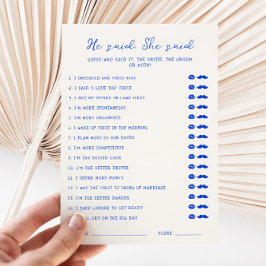 He said, She said
GUESS WHO SAID IT: THE BRIDE, THE GROOM
OR BOTH!
1. I INITIATED OUR FIRST KISS
2. I SAID 'I LOVE YOU' FIRST
3. I MET MY FUTURE IN-LAWS FIRST
4. I'M MORE SPONTANEOUS
5. I'M MORE ORGANIZED
6. I WAKE UP FIRST IN THE MORNING
7. I PLAN MOST OF OUR DATES
8. I'M MORE COMPETITIVE
9. I'M THE BETTER COOK
10. I'M THE BETTER DRIVER
11. I SPEND MORE MONEY
12. I WAS THE FIRST TO BRING UP MARRIAGE
13. I'M THE BETTER DANCER
14. I TAKE LONGER TO GET READY
CRY ON THE BIG DAY
SCORE